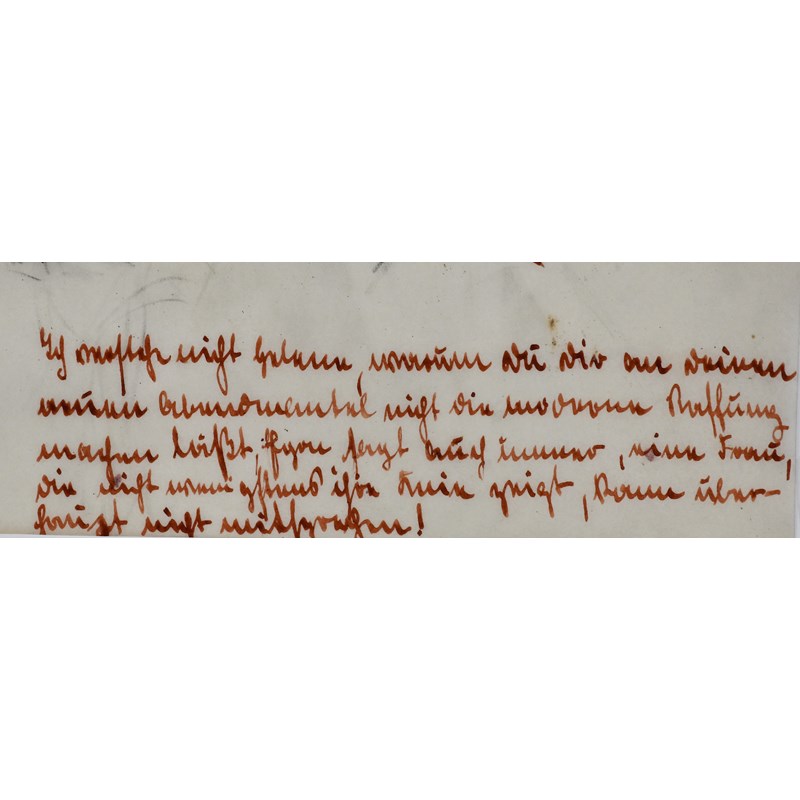 Ich verstehe nicht Helene, warum du dir an deinen
neuen Abendmantel nicht die moderne Raffung
machen läßt, Egon sagt auch immer, eine Frau,
die nicht wenigstens ihre Knie zeigt, kann über-
haupt nicht mitsprechen!